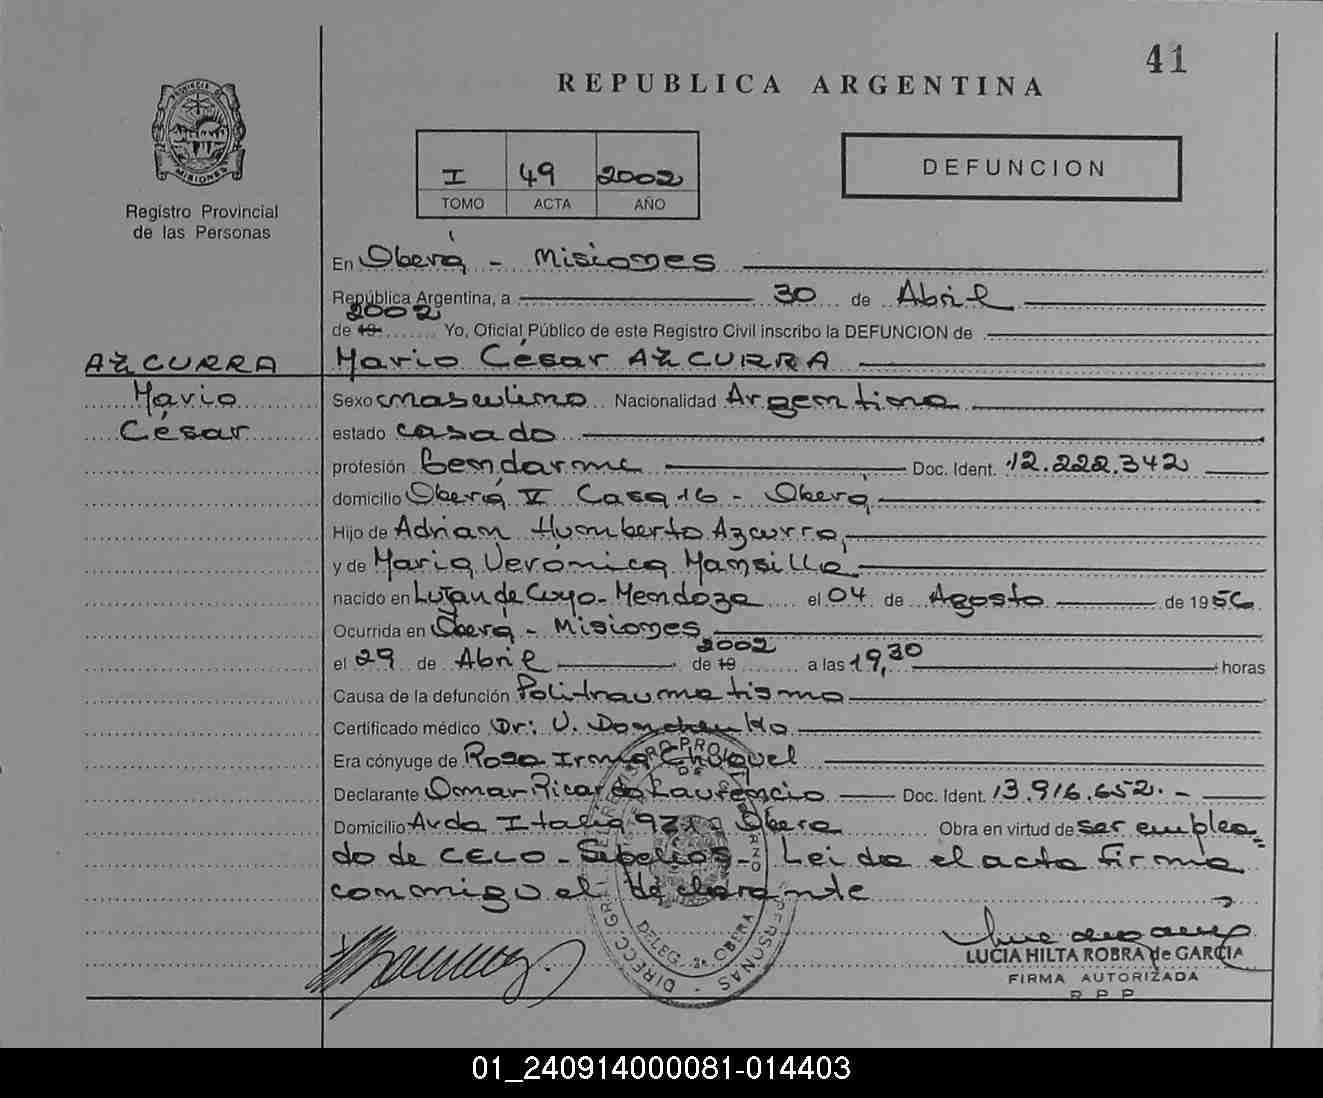 41
REPUBLICA ARGENTINA
PROVINCIA DE
MISIONES
Registro Provincial
de las Personas
I 49 2002
TOMO ACTA AÑO
DEFUNCION
En Oberá - Misiones
República Argentina, a 30 de Abril
2002
de 19 Yo, Oficial Público de este Registro Civil inscribo la DEFUNCION de
AZCURRA Mario César AZCURRA
Mario Sexo masculino Nacionalidad Argentina
César estado casado
profesión Gendarme Doc. Ident. 12.222.342
domicilio Oberá V Casa 16 - Oberá
Hijo de Adrian Humberto Azcurra,
y de Maria Verónica Mansilla
nacido en Lujan de Cuyo - Mendoza el 04 de Agosto de 1956
Ocurrida en Oberá - Misiones
2002
el 29 de Abril de 19 a las 19,30 horas
Causa de la defunción Politraumatismo
Certificado médico Dr: V. Donchenko
Era cónyuge de Rosa Irma
Declarante Omar Ricardo Laurencio Doc. Ident. 13.916.652.-
Domicilio Avda Italia Oberá Obra en virtud de ser emplea=
do de CELO - Sepelios - Leida el acta firma
conmigo el declarante
LUCIA HILTA ROBRA de GARCIA
FIRMA AUTORIZADA
R P P
01_240914000081-014403